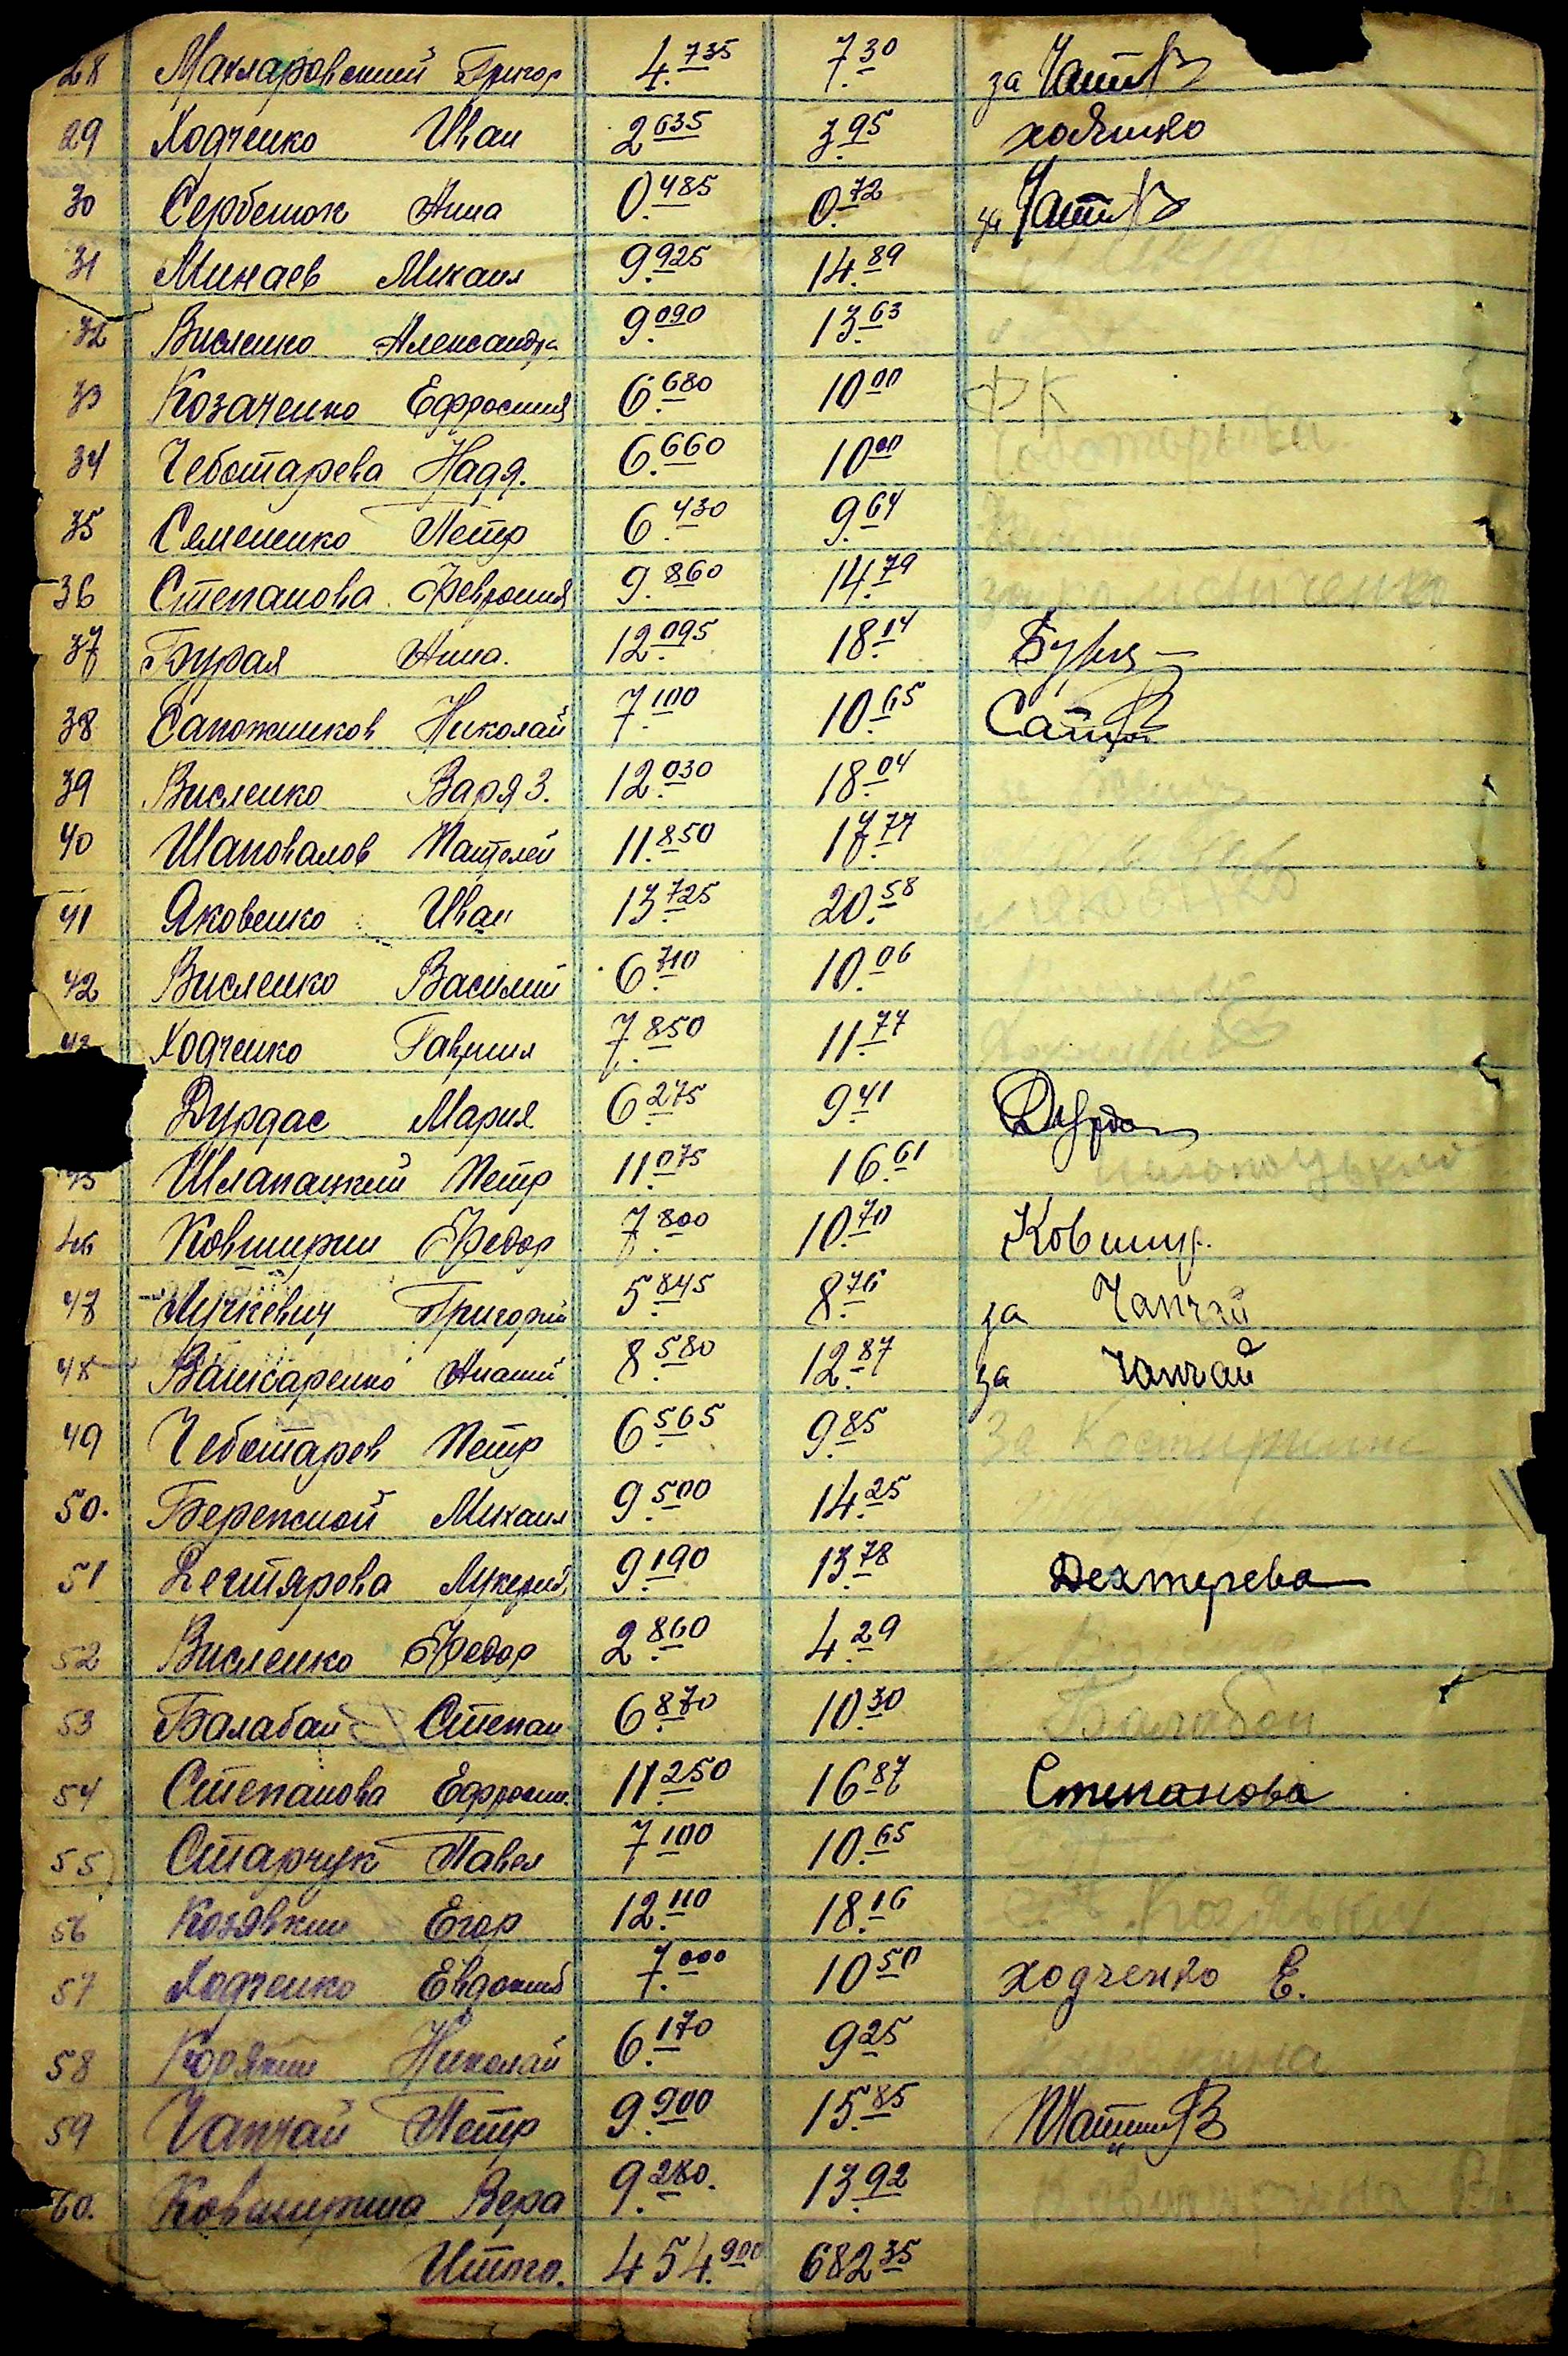 28 Макларовский Григор 4.735 7.30 за
29 Ходченко Иван 2 635 3.95 ходченко
30 Сербенюк Анна 0.485 0.72 за
31 Минаев Михаил 9.925 14.89
32 Висленко Александра 9.090 13.63
33 Козаченко Ефросиния 6.680 10 00 ФК
34 Чеботарева Надя. 6.660 10 00
35 Семененко Петр 6.430 9.64
36 Степанова Феврония 9.860 14.79
37 Бурая Анна. 12.095 18.14 Бурая
38 Сапожников Николай 7.100 10.65
39 Висленко Варя З. 12.030 18.04
40 Шаповалов Пантелей 11.850 17.77
41 Яковенко Иван 13.725 20.58 Яковенко
42 Висленко Василий 6.710 10.06
43 Ходченко Гаврил 7.850 11.77
Дурдас Мария 6.275 9.41 Дурда
45 Шлапацкий Петр 11.075 16.61
46 Ковширин Федор 7.800 10.70 Ковшир.
47 Лучкевич Григорий 5.845 8.76 за Чапчай
48 Вансаренко Игнатий 8.580 12.87 за Чапчай
49 Чеботарев Петр 6.565 9.85 За
50. Бережной Михаил 9.500 14.25
51 Дегтярева Лукерия 9.190 13.78 Дехтерева
52 Висленко Федор 2.860 4.29
53 Балабан Степан 6.870 10.30 Балабан
54 Степанова Ефросин. 11.250 16.87 Степанова
55 Старчук Павел 7.100 10.65
56 Козявкин Егор 12.110 18.16
57 Ходченко Евдокия 7.000 10 50 ходченко Е.
58 Корякин Николай 6.170 9 25
59 Чапчай Петр 9.900 15.85
60. Ковширина Вера 9.280. 13 92
Итого. 454.900 682 35